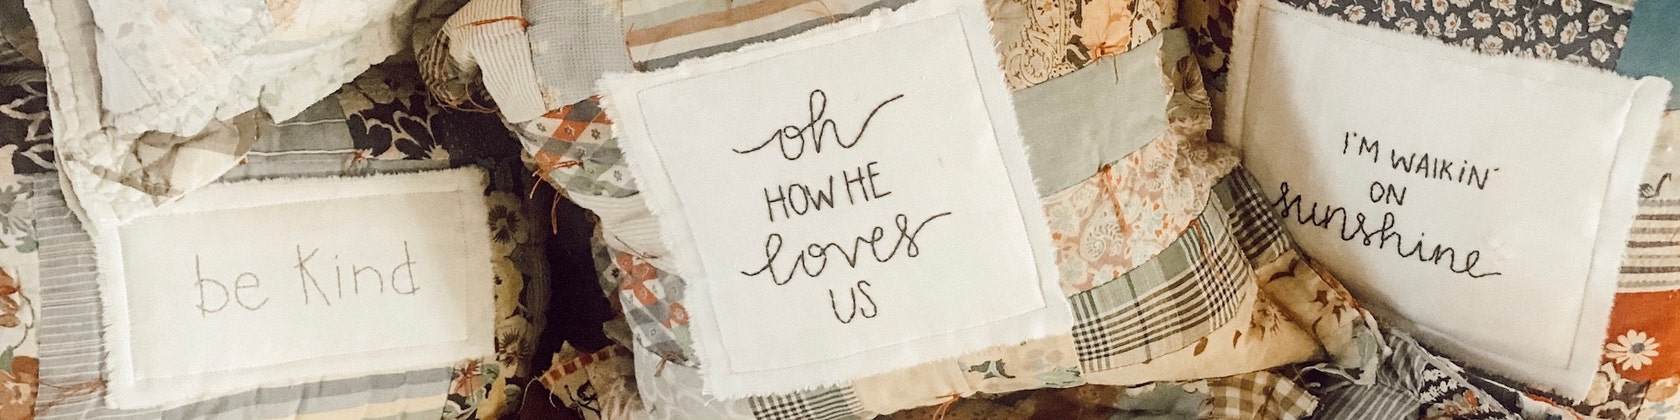 be Kind
oh
HOW HE
loves
US
I'M WALKIN'
ON
sunshine